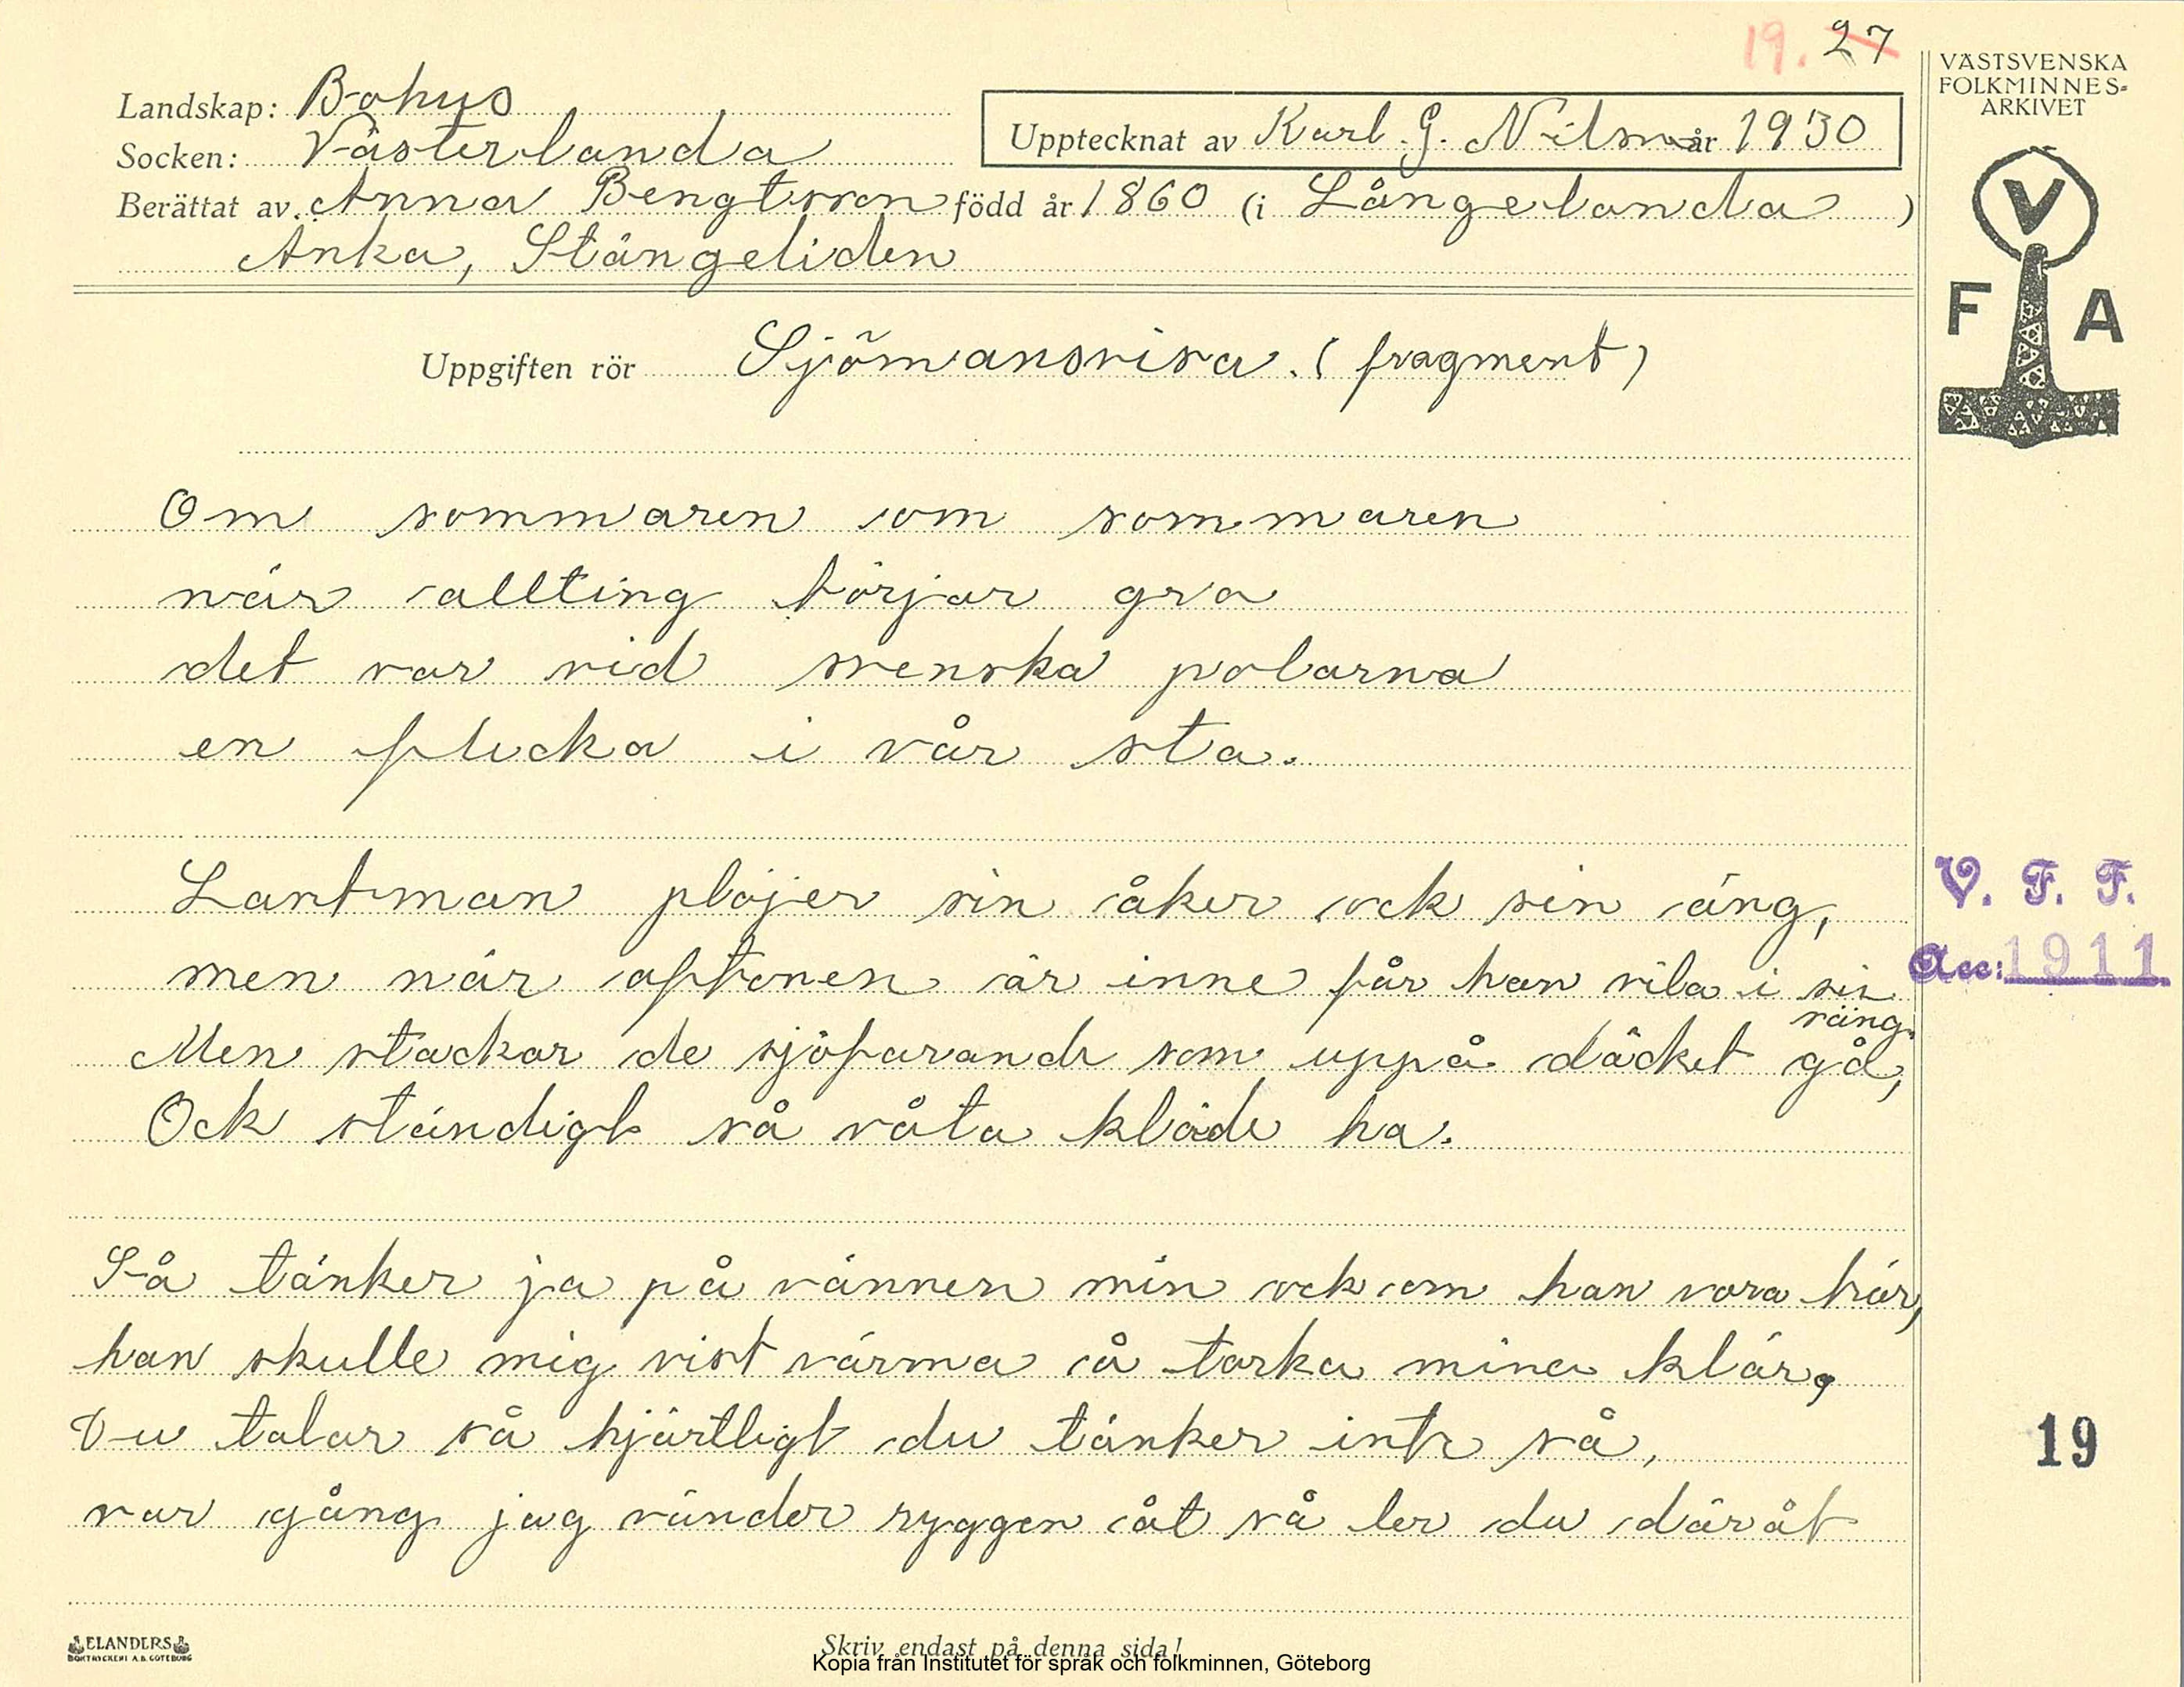 19. 27
VÄSTSVENSKA
FOLKMINNES-
ARKIVET
Landskap: Bohus
Socken: Västerlanda
Upptecknat av Karl G. Nilsson år 1930
Berättat av Anna Bengtsson född år 1860 (i Långelanda)
Anka, Stängeliden
V
F A
Uppgiften rör Sjömansvisa. (fragment)
Om sommaren om sommaren
när allting börjar gro
det var vid svenska polarna
en flicka i vår sta.
Lantman plöjer sin åker ock sin äng,
men när aftonen är inne får han vila i sin
säng.
Men stackar de sjöfarande som uppå däcket gå,
Ock ständigt så våta kläde ha.
Så tänker ja på vännen min ock om han vora här,
han skulle mig vist värma å torka mina klär,
Du talar så hjärtligt du tänker inte så,
var gång jag vänder ryggen åt så ler du däråt
V. F. F.
Acc: 1911
19
ELANDERS
BOKTRYCKERI A.B. GÖTEBORG
Skriv endast på denna sida!
Kopia från Institutet för språk och folkminnen, Göteborg